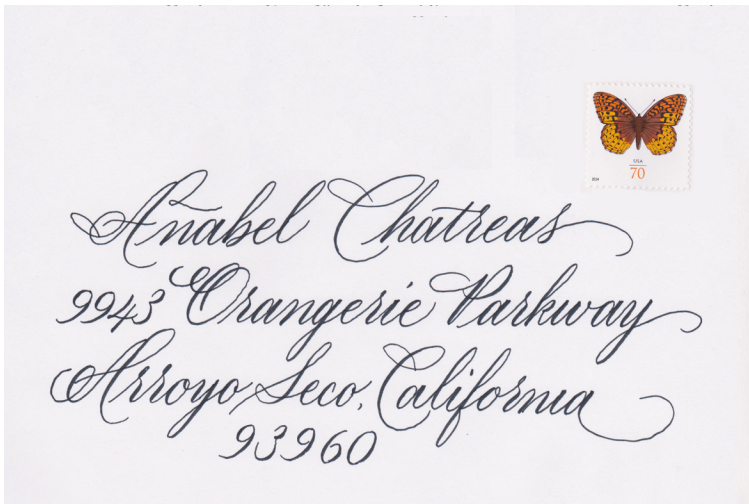 USA
70
2014
Añabel Chatreas
9943 Orangerie Parkway
Arroyo Seco, California
93960